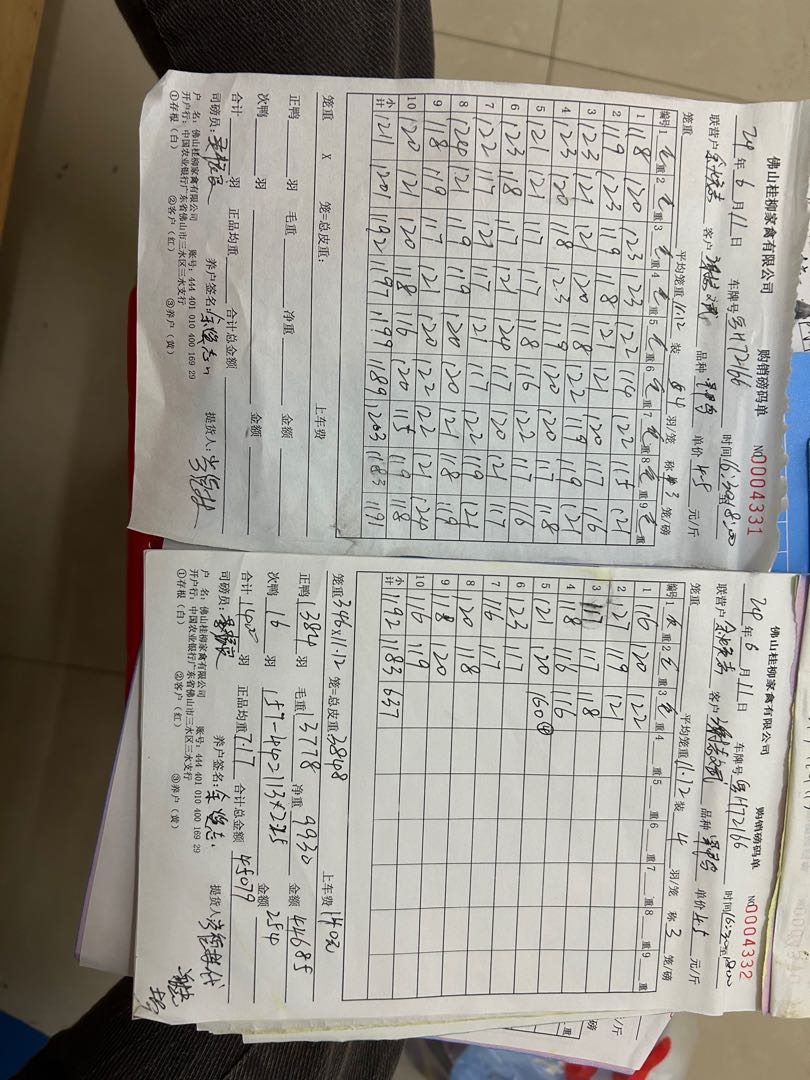 佛山桂柳家禽有限公司 购销磅码单 NO 0004331
24年6月11日 车牌号 粤H72166 时间 16:30至18:00
联营户 客户 品种 单价 4.5 元/斤
笼重 平均笼重 11.12 装 4 羽/笼 称 3 笼/磅
编号 1 重 2 重 3 重 4 重 5 重 6 重 7 重 8 重 9 重
1 118 120 123 123 122 114 122 115 121
2 119 123 119 118 121 121 120 117 116
3 123 121 121 120 118 122 119 119 121
4 123 120 118 123 119 120 120 117 118
5 121 121 117 117 118 116 122 117 116
6 123 118 117 121 124 117 120 121 117
7 122 117 121 117 121 117 122 119 121
8 124 121 119 119 120 120 121 118 119
9 118 119 117 121 120 122 122 121 124
10 120 121 120 118 116 120 115 119 118
小计 1211 1201 1192 1197 1199 1189 1203 1183 1191
笼重 X 笼=总皮重: 上车费
正鸭 羽 毛重 净重 金额
次鸭 羽 金额
合计 羽 正品均重 合计总金额
司磅员: 养户签名: 提货人:
户 名: 佛山桂柳家禽有限公司 账号: 444 401 010 400 169 29
开户行: 中国农业银行广东省佛山市三水区三水支行
①存根(白) ②客户(红) ③养户(黄)
佛山桂柳家禽有限公司 购销磅码单 NO 0004332
24年6月11日 车牌号 粤H72166 时间 16:30至18:00
联营户 客户 品种 单价 4.5 元/斤
笼重 平均笼重 11.12 装 4 羽/笼 称 3 笼/磅
编号 1 重 2 重 3 重 4 重 5 重 6 重 7 重 8 重 9 重
1 116 120 122
2 121 119 121
3 117 118
4 118 116 116
5 121 120 160④
6 123 117
7 116 117
8 120 118
9 118 120
10 116 119
小计 1192 1183 637
笼重 346x11.12 笼=总皮重: 3848 上车费 1403
正鸭 1384 羽 毛重 13778 净重 9930 金额 44685
次鸭 16 羽 金额 254
合计 羽 正品均重 7.17 合计总金额 45079
司磅员: 养户签名: 提货人:
户 名: 佛山桂柳家禽有限公司 账号: 444 401 010 400 169 29
开户行: 中国农业银行广东省佛山市三水区三水支行
①存根(白) ②客户(红) ③养户(黄)